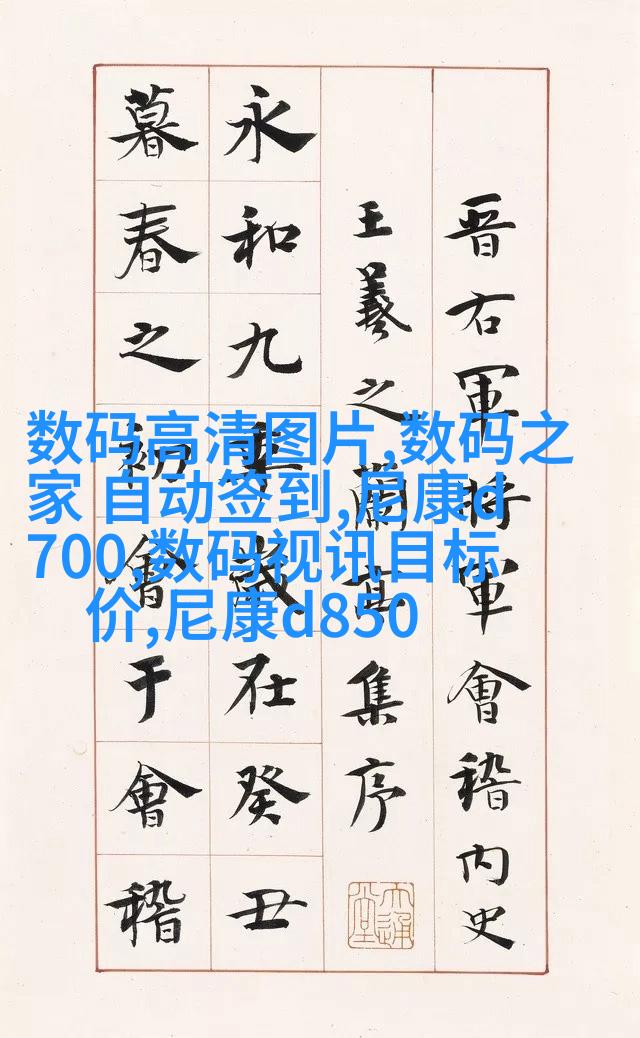 晋右軍将軍會稽内史
王羲之蘭亭集序
永和九年歲在癸丑
暮春之初會于會稽
数码高清图片,数码之
家 自动签到,尼康d
700,数码视讯目标
价,尼康d850